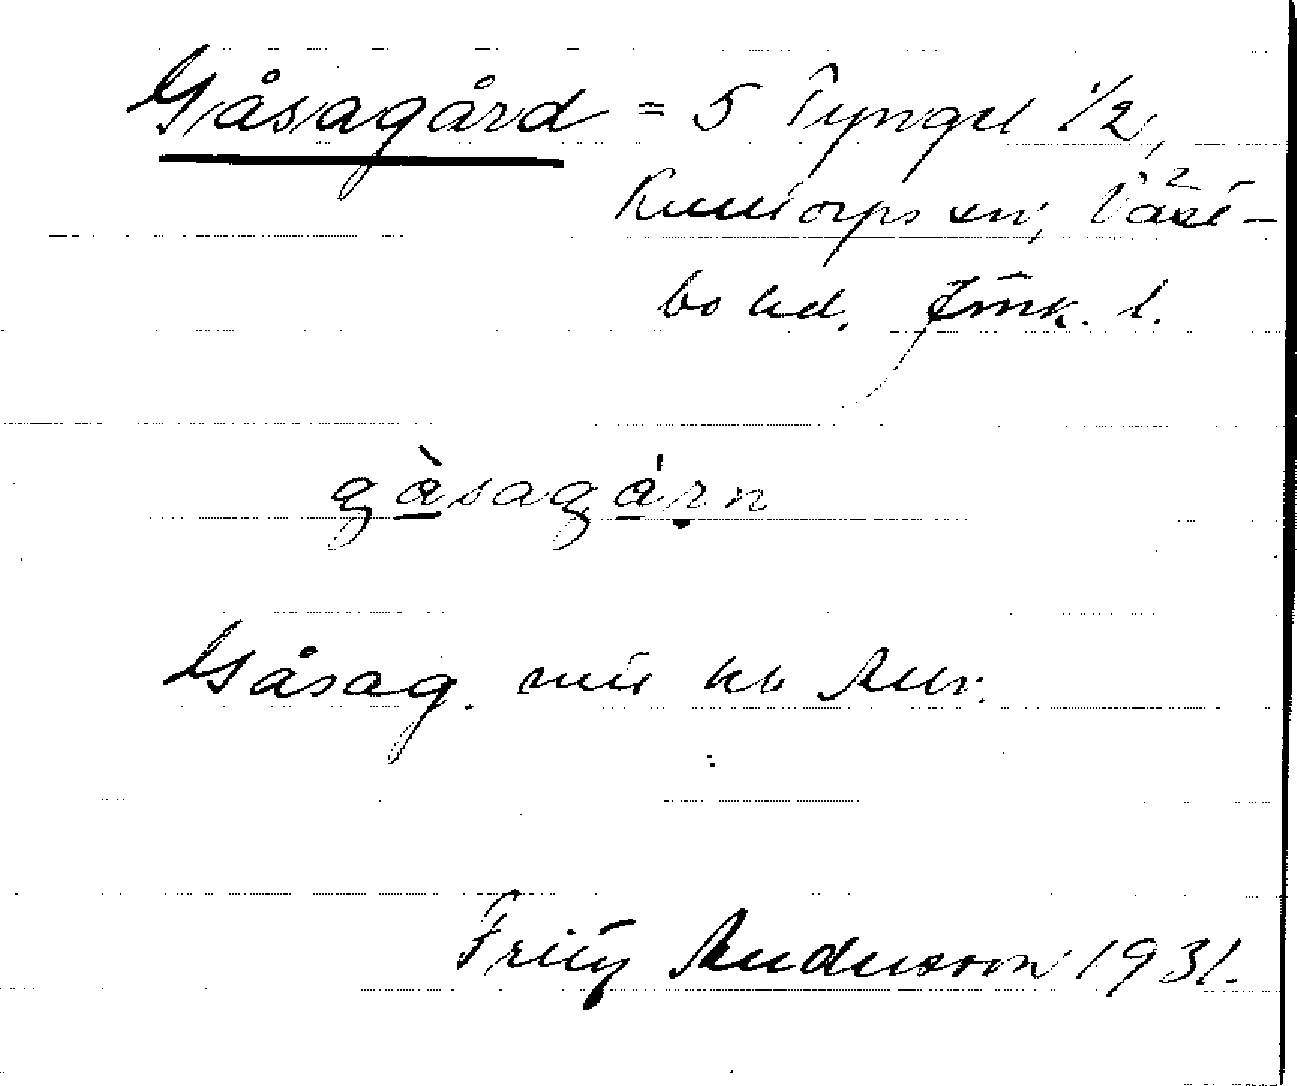 Gåsagård = 5 Tyngel 1/2,
Kulltorps sn, Väst-
bo hd. Jönk. l.
gàsagárn
Gåsag.
Fritz Andersson 1931.